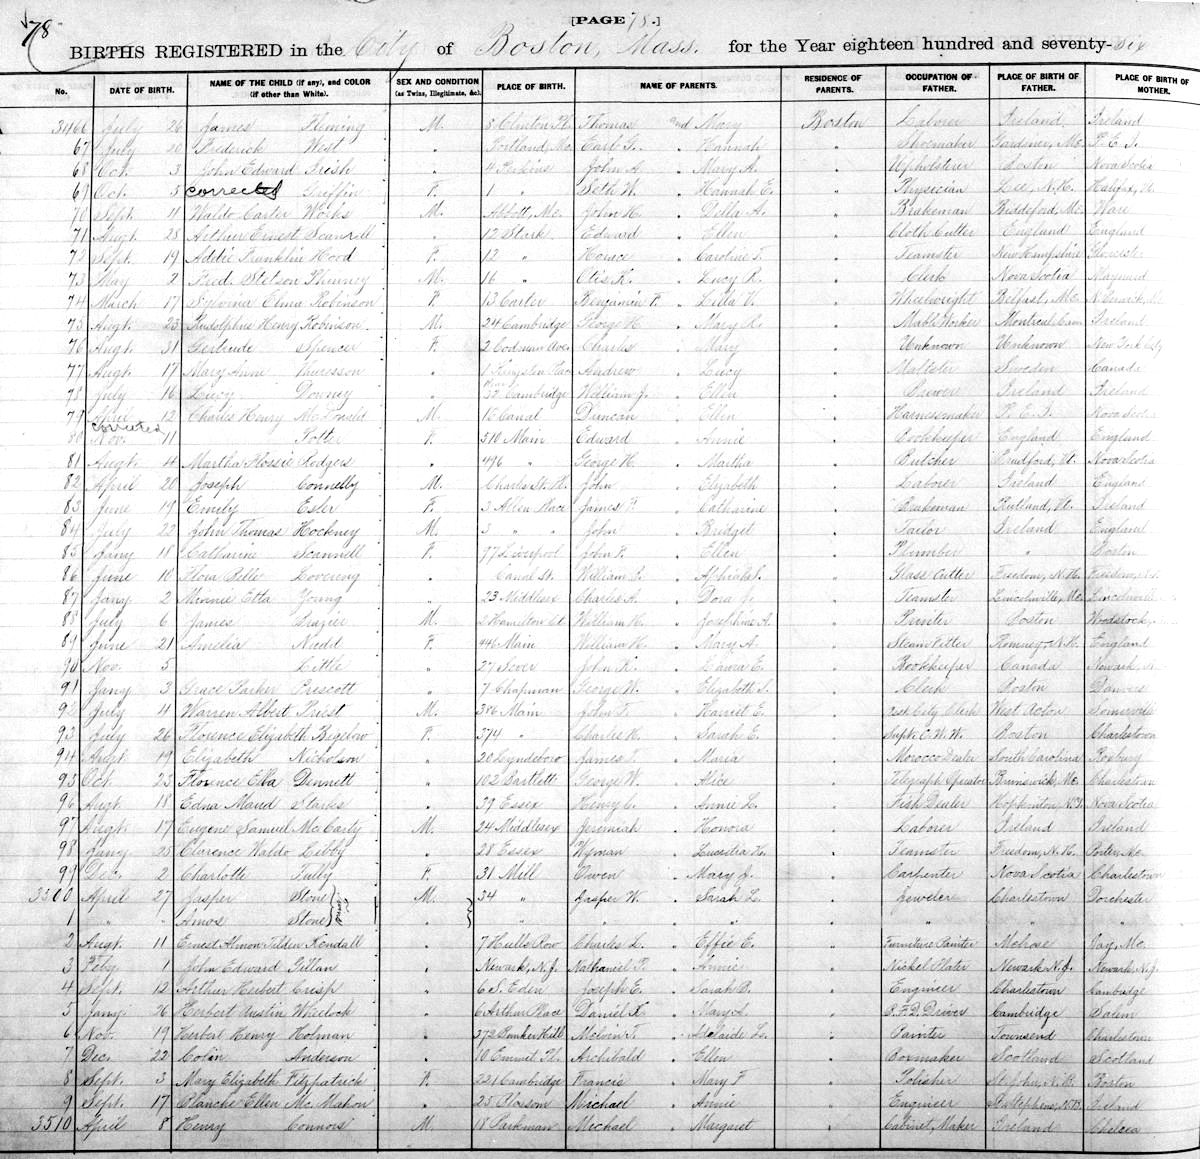 78
[PAGE 78.]
BIRTHS REGISTERED in the City of Boston, Mass. for the Year eighteen hundred and seventy-six
No. DATE OF BIRTH. NAME OF THE CHILD (if any), and COLOR (if other than White). SEX AND CONDITION (as Twins, Illegitimate, &c). PLACE OF BIRTH. NAME OF PARENTS. RESIDENCE OF PARENTS. OCCUPATION OF FATHER. PLACE OF BIRTH OF FATHER. PLACE OF BIRTH OF MOTHER.
3466 July 26 James Fleming M. 8 Clinton Pl. Thomas and Mary Boston Laborer Ireland Ireland
67 July 20 Frederick West " Portland, Me. Earl " Hannah " Shoemaker Gardiner, Me. P. E. I.
68 Oct. 3 John Edward Irish " 4 Perkins John A. " Mary A. " Upholsterer Boston Nova Scotia
69 Oct. 5 corrected Griffin F. 1 " Seth W. " Hannah E. " Physician Lee, N.H. Halifax,
70 Sept. 11 Waldo Carter Works M. Abbott, Me. John H. " Della A. " Brakeman Biddeford, Me. Ware
71 Augt. 28 Arthur Ernest Scannell " 12 Stark Edward " Ellen " Cloth Cutter England England
72 Sept. 19 Addie Franklin Hood F. 12 " Horace " Caroline F. " Teamster New Hampshire Gloucester
73 May 2 Fred. Stetson Phinney M. 16 " Otis K. " Lucy R. " Clerk Nova Scotia Maynard
74 March 17 Elma Robinson F. 13 Carter Benjamin F. " Lilla V. " Wheelwright Belfast, Me.
75 Augt. 23 Rudolphus Henry Robinson M. 24 Cambridge George H. " Mary R. " Mable Worker Montreal, Can Ireland
76 Augt. 31 Gertrude Spencer F. 2 Codman Ave. Charles " Mary " Unknown Unknown New York City
77 Augt. 17 Mary Anne " 1 Kingston Place Andrew " Lucy " Sweden Canada
78 July 16 Lucy Downey " 32 Cambridge William J. " Ellen " Ireland Ireland
79 April 12 Charles Henry McDonald M. 15 Canal Duncan " Ellen " Harnessmaker P. E. I. Nova Scotia
corrected
80 Nov. 11 Potter F. 510 Main Edward " Annie " Bookkeeper England England
81 Augt. 4 Martha Flossie Rodgers " 496 " George H. " Martha " Butcher Nova Scotia
82 April 20 Joseph Connelly M. Charles St. Pl. John " Elizabeth " Laborer Ireland England
83 June 19 Emily Esler F. 3 Allen Place James F. " Catharine " Brakeman Rutland, Vt. Ireland
84 July 22 John Thomas Hockney M. 3 " " John " Bridget " Tailor Ireland England
85 Jany 18 Catharine Scannell F. 77 Liverpool John P. " Ellen " Plumber " Boston
86 June 10 Flora Belle Lovering " Canal St. William " " Glass Cutter Freedom, N.H.
87 Jany 2 Minnie Etta Young " 23 Middlesex Charles A. " Dora J. " Teamster Lincolnville, Me. Lincolnville
88 July 6 James Frazier M. 2 Hamilton Ct. William H. " Josephine A. " Printer Boston Woodstock,
89 June 21 Amelia Nudd F. 446 Main William H. " Mary A. " Steam Fitter Romney, N.H. England
90 Nov. 5 Little " 27 Sever John K. " Laura E. " Bookkeeper Canada Newark, N.
91 Jany 3 Grace Parker Prescott " 7 Chapman George W. " Elizabeth S. " Clerk Boston Danvers
92 July 4 Warren Albert Priest M. 386 Main John F. " Harriet E. " Asst City Clerk West Acton Somerville
93 July 26 Florence Elizabeth Bigelow F. 374 " Charles H. " Sarah E. " Supt. C. W. W. Boston Charlestown
94 Augt. 19 Elizabeth Nicholson " 20 Lyndeboro James " Maria " Morocco Dealer South Carolina Roxbury
95 Oct. 23 Florence Ella Dennett " 102 Bartlett George W. " Alice " Telegraph Operator Brunswick, Me. Charlestown
96 Augt. 18 Edna Maud Starks " 39 Essex Henry C. " Annie L. " Fish Dealer Hopkinton, Nova Scotia
97 Augt. 17 Eugene Samuel McCarty M. 24 Middlesex Jeremiah " Honora " Laborer Ireland Ireland
98 Jany 25 Clarence Waldo Libby " 28 Essex Wyman " Lucretia H. " Teamster Freedom, N.H. Porter, Me.
99 Dec. 2 Charlotte F. 31 Mill Owen " Mary J. " Carpenter Nova Scotia Charlestown
3500 April 27 Jasper Stone M. 34 " Jasper W. " Sarah L. " Jeweler Charlestown Dorchester
1 " " Amos Stone " " " " " " " " "
2 Augt. 11 Ernest Almon Tilden Kendall " 7 Hulls Row Charles L. " Effie E. " Furniture Painter Melrose Jay, Me.
3 Feby 1 John Edward Gillan " Newark, N.J. Nathaniel P. " Annie " Nickel Plater Newark N.J. Newark, N.J.
4 Sept. 12 Arthur Herbert Crisp " 6 S. Eden Joseph E. " Sarah B. " Engineer Charlestown Cambridge
5 Jany 26 Herbert Austin Wheelock " 6 Arthur Place Daniel K. " Mary A. " Driver Cambridge Salem
6 Nov. 19 Herbert Henry Holman " 372 Bunker Hill Melvin T. " Adelaide L. " Painter Townsend Charlestown
7 Dec. 22 Colin Anderson " 10 Emmet Pl. Archibald " Ellen " Boxmaker Scotland Scotland
8 Sept. 3 Mary Elizabeth Fitzpatrick F. 221 Cambridge Francis " Mary F " Polisher St. John, N.B. Boston
9 Sept. 17 Blanche Ellen McMahon " 25 Blossom Michael " Annie " Engineer St. Stephens, N.B. Ireland
3510 April 8 Henry Connors M. 18 Parkman Michael " Margaret " Cabinet Maker Ireland Chelsea